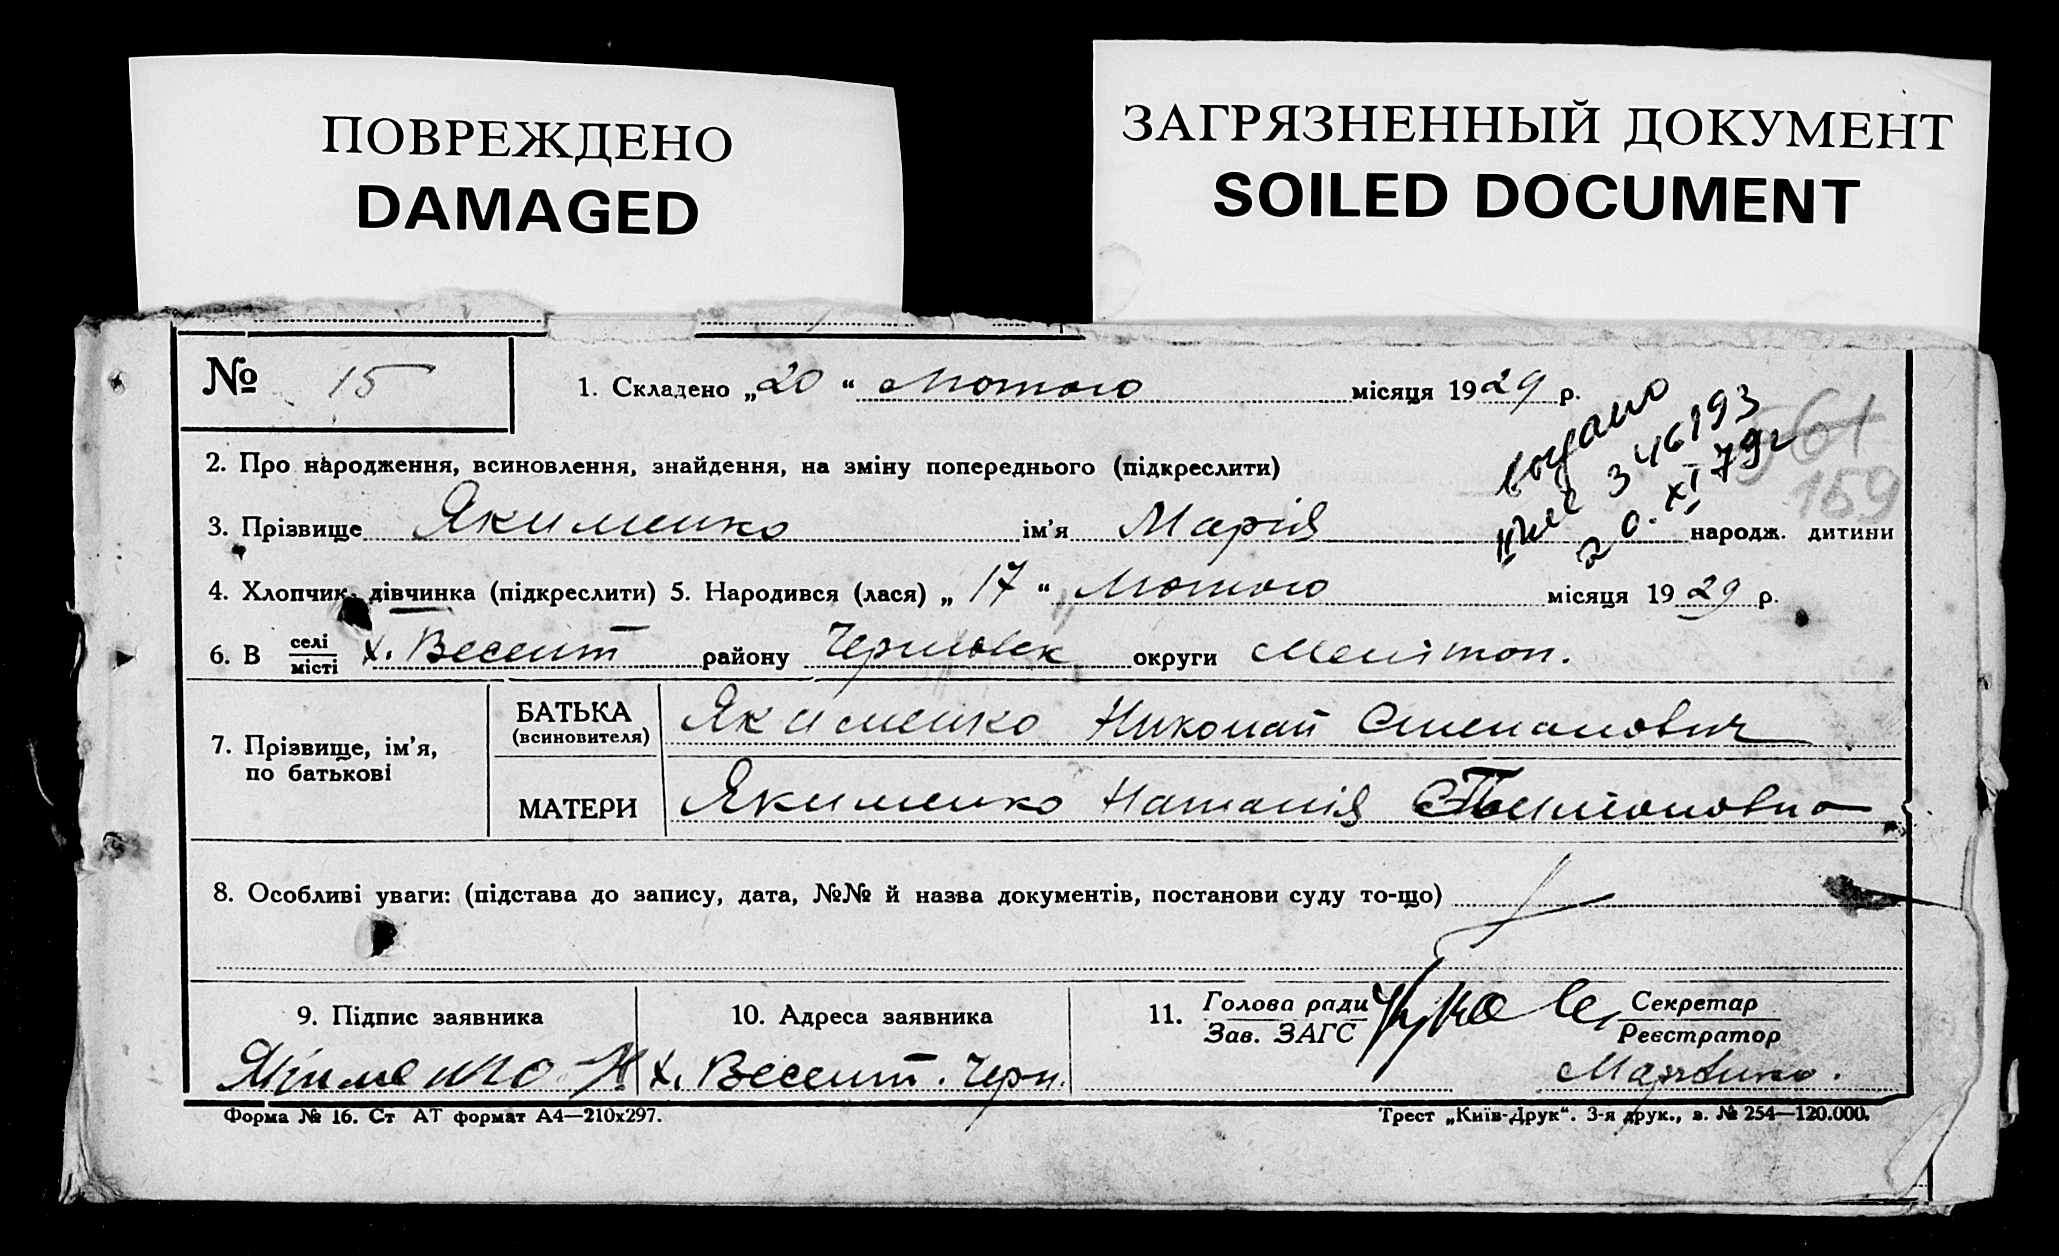 ПОВРЕЖДЕНО
DAMAGED
ЗАГРЯЗНЕННЫЙ ДОКУМЕНТ
SOILED DOCUMENT
№ 15
1. Складено „20“ Лютого місяця 1929 р.
выдано
346193
20.XI 79г
561
159
2. Про народження, всиновлення, знайдення, на зміну попереднього (підкреслити)
3. Прізвище Якименко ім'я Марія народж. дитини
4. Хлопчик, дівчинка (підкреслити) 5. Народився (лася) „17“ Лютого місяця 1929 р.
6. В селі місті х. Веселит району округи Мелітоп.
7. Прізвище, ім'я, по батькові
БАТЬКА (всиновителя) Якименко Николай Степанович
МАТЕРИ Якименко Наталія
8. Особливі уваги: (підстава до запису, дата, №№ й назва документів, постанови суду то-що)
9. Підпис заявника
10. Адреса заявника
11. Голова ради Зав. ЗАГС
Секретар Реєстратор
Якименко Н х. Веселит. Черн.
Форма № 16. Ст АТ формат А4—210х297.
Трест „Київ-Друк“. 3-я друк., з. № 254—120.000.